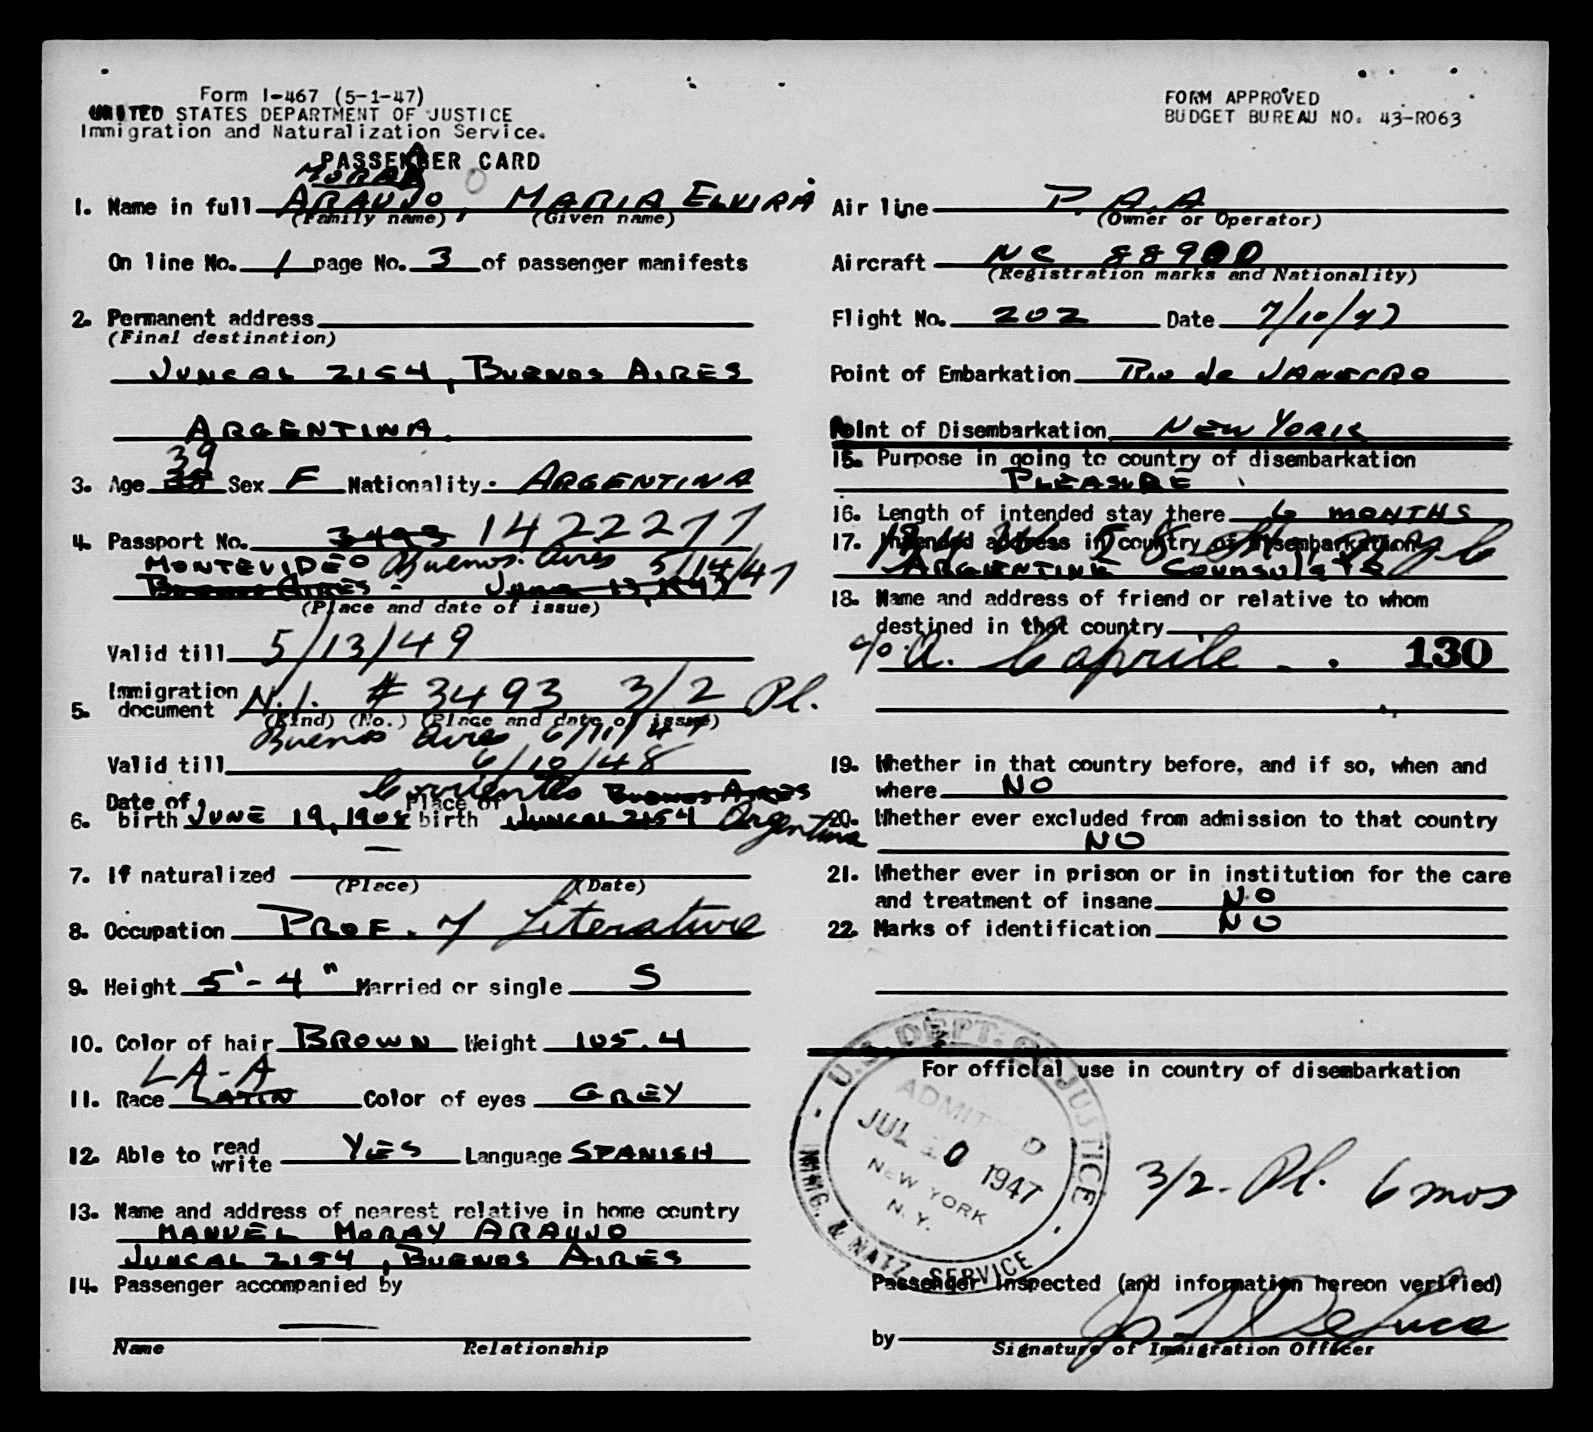 Form I-467 (5-1-47)
UNITED STATES DEPARTMENT OF JUSTICE
Immigration and Naturalization Service.
FORM APPROVED
BUDGET BUREAU NO. 43-R063
PASSENGER CARD
1. Name in full ARAUJO, MARIA ELVIRA
(Family name) (Given name)
On line No. 1 page No. 3 of passenger manifests
2. Permanent address
(Final destination)
JUNCAL 2154, BUENOS AIRES
ARGENTINA.
39
3. Age 38 Sex F Nationality ARGENTINA
4. Passport No. 3493 1422277
MONTEVIDEO Buenos Aires 5/14/47
BUENOS AIRES - June 13, 1947
(Place and date of issue)
Valid till 5/13/49
5. Immigration document N.I. # 3493 3/2 Pl.
(Kind) (No.) (Place and date of issue)
Buenos Aires 6/11/47
Valid till 6/10/48
Corrientes BUENOS AIRES
6. Date of birth JUNE 19, 1908 Place of birth JUNCAL 2154 Argentina
7. If naturalized —
(Place) (Date)
8. Occupation PROF. of Literature
9. Height 5'-4" Married or single S
10. Color of hair BROWN Weight 105.4
LA-A
11. Race LATIN Color of eyes GREY
12. Able to read write YES Language SPANISH
13. Name and address of nearest relative in home country
MANUEL MORAY ARAUJO
JUNCAL 2154, BUENOS AIRES
14. Passenger accompanied by
—
Name Relationship
Air line P.A.A
(Owner or Operator)
Aircraft NC 88900
(Registration marks and Nationality)
Flight No. 202 Date 7/10/47
Point of Embarkation Rio de JANEIRO
Point of Disembarkation NEW YORK
15. Purpose in going to country of disembarkation
PLEASURE
16. Length of intended stay there 6 MONTHS
17. Intended address in country of disembarkation
ARGENTINE
18. Name and address of friend or relative to whom
destined in that country
c/o A. Caprile
130
19. Whether in that country before, and if so, when and
where NO
20. Whether ever excluded from admission to that country
NO
21. Whether ever in prison or in institution for the care
and treatment of insane NO
22. Marks of identification NO
For official use in country of disembarkation
U.S. DEPT. OF JUSTICE
ADMITTED
JUL 10 1947
NEW YORK
N.Y.
IMMG. & NATZ. SERVICE
3/2 - Pl. 6 mos
Passenger inspected (and information hereon verified)
by
Signature of Immigration Officer